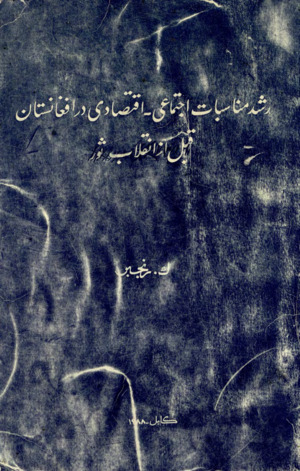 رشد مناسبات اجتماعی - اقتصادی در افغانستان
قبل از انقلاب ثور
ت. رنجبر
کابل - ۱۹۸۸